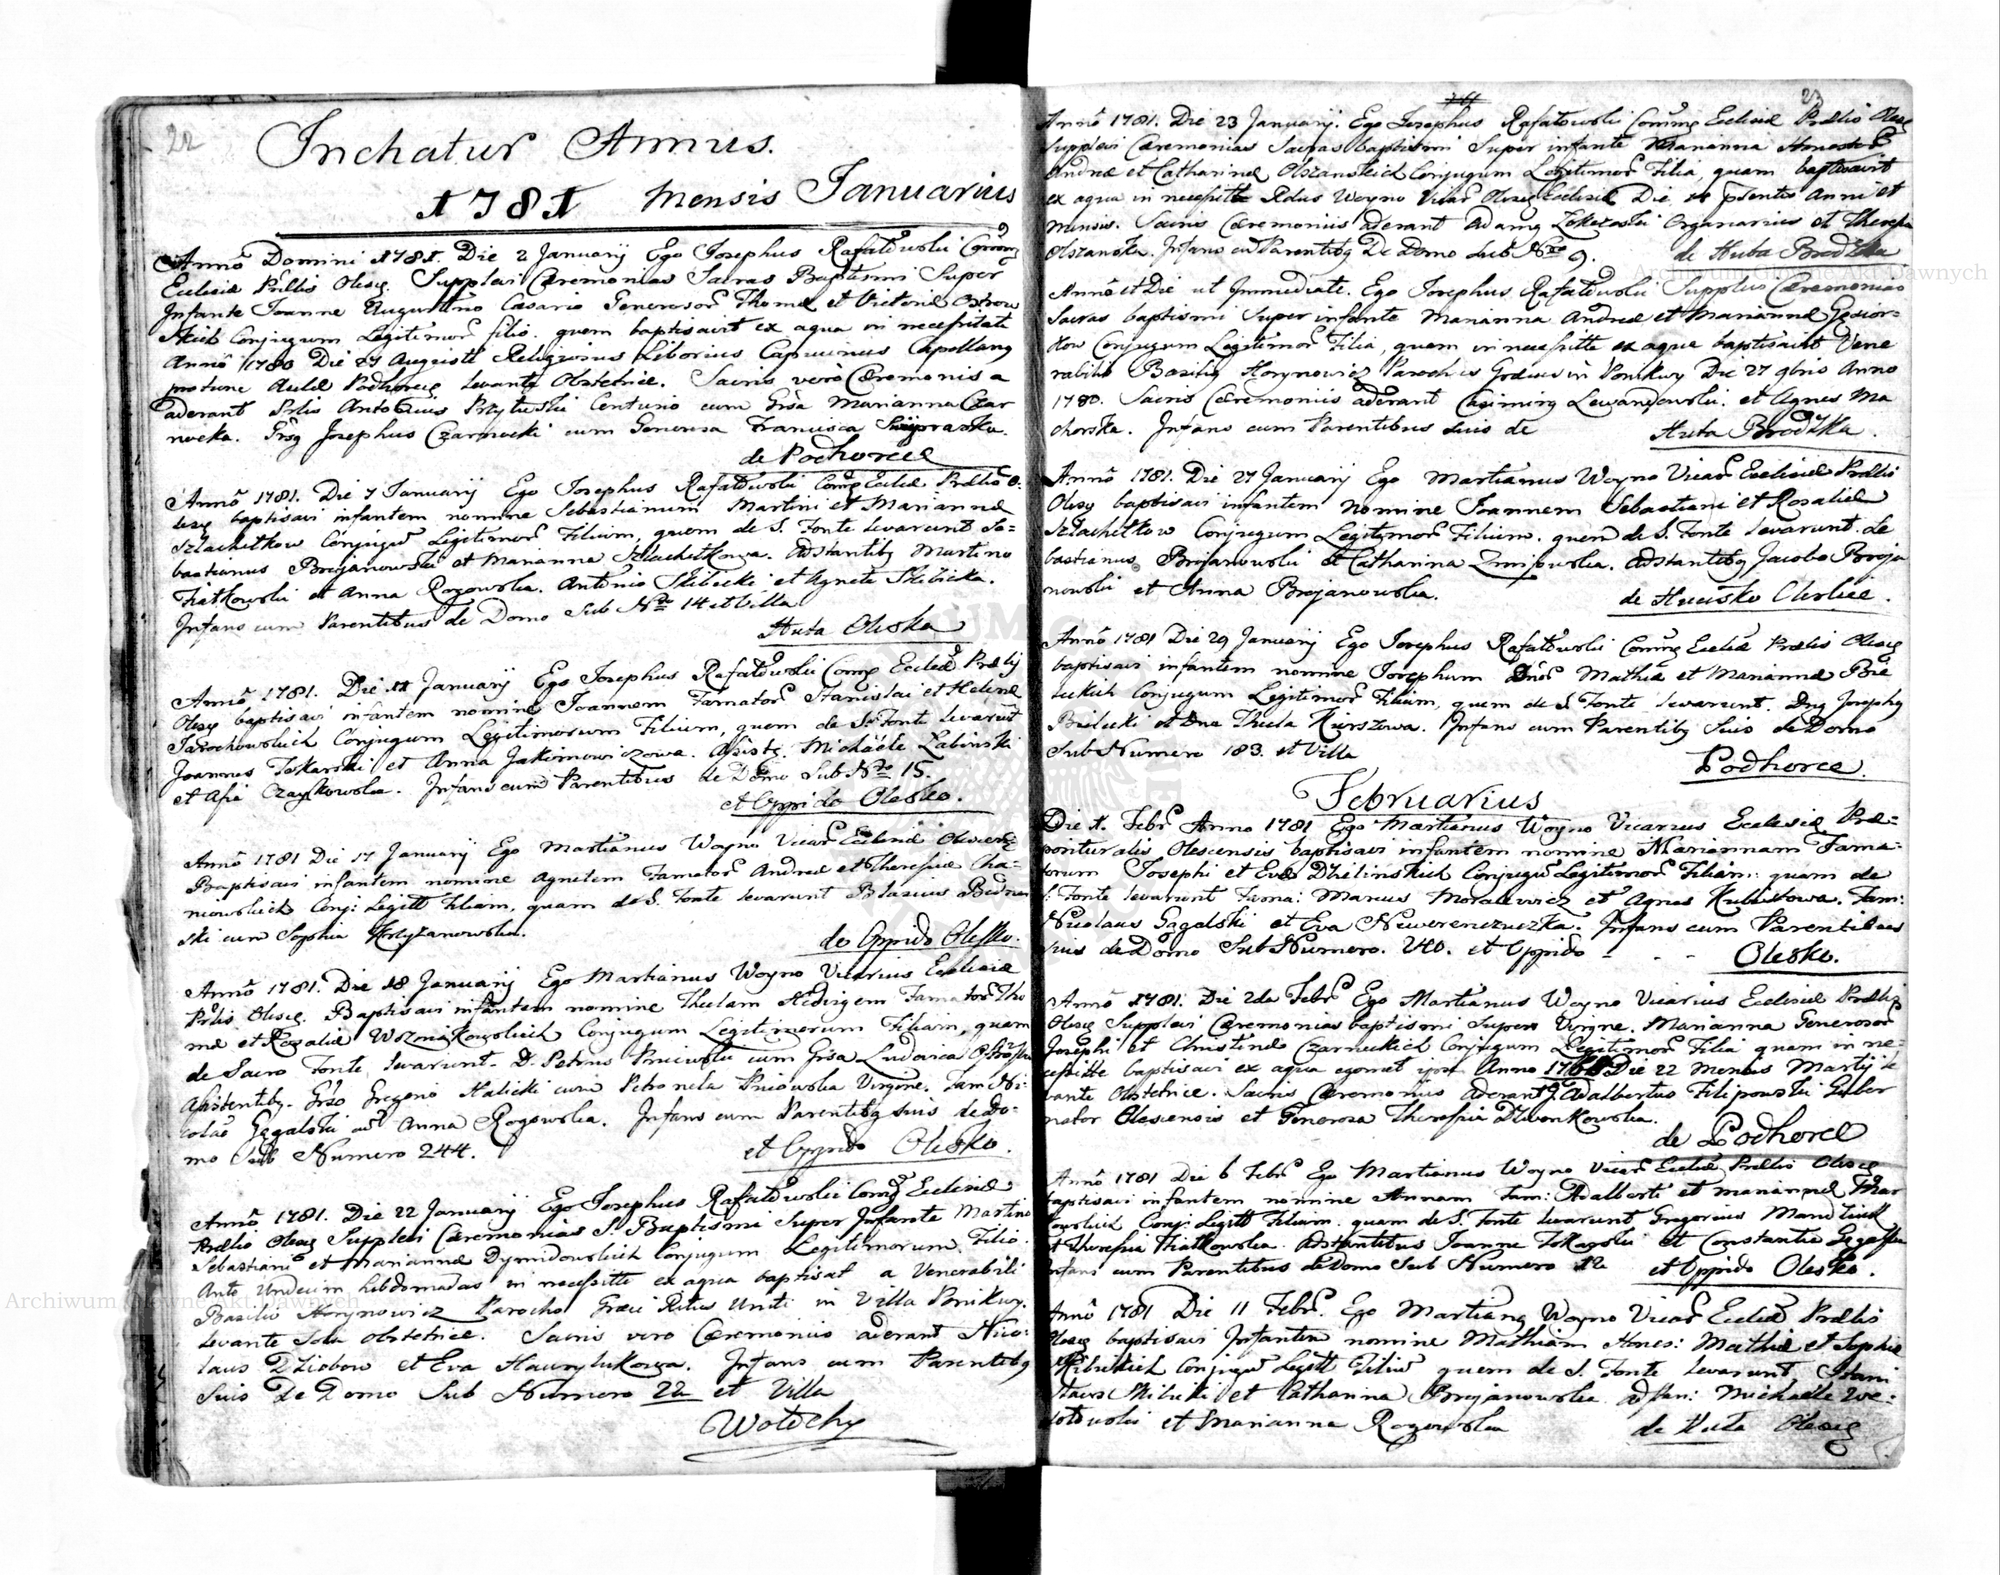 22
Inchatur Annus.
1781 Mensis Januarius
Anno Domini 1781. Die 2 Januarij Ego Josephus Rafałowski
Ecclesiæ Prælis Olesc. Supplevi Cæremonias Sacras Baptismi Super
Infante Joanne Augustino Casario Generosor Thomæ et Victoriæ Ostrow
skich Conjugum Legitimor filio. quem baptisavit ex aqua in necessitate
Anno 1780 Die 27 Augusti Religiosus Liborius Capucinus Capellang
protunc Aulæ Podhorcig levante Obstetrice. Sacris vero Cæremoniis
aderant Prlis Antonius Przyłuski Centurio cum Grsa Marianna Czar
necka. Grsg Josephus Czarnecki cum Generosa Francisca
de Podhorce
Anno 1781. Die 7 Januarij Ego Josephus Rafałowski Comg Ecclæ Prælis O-
lesg baptisavi infantem nomine Sebastianum Martini et Mariannæ
Szlachetkow Conjugum Legitimor Filium, quem de S. Fonte levarunt Se=
bastianus Brojanowski et Marianna Szlachetkowa. Adstantibg Martino
Fiatkowski et Anna Rogowska. Antonio Skibicki et Agnete Skibicka.
Infans cum Parentibus de Domo Sub Nro 14 et Villa
Huta Oleska
Anno 1781. Die 11 Januarij Ego Josephus Rafałowski Comg Ecclæ Prælij
Olesg baptisavi infantem nomine Joannem Famator Stanislai et Helenæ
Sarochowskich Conjugum Legitimorum Filium, quem de S. Fonte levarunt
Joannes Tokarski et Anna Jakimowiczowa. Assistg Michaele Łabinski
et Asia Czaykowska. Infans cum Parentibus de Domo Sub Nro 15.
et Oppido Olesko.
Anno 1781 Die 17 Januarij Ego Martianus Woyno Vicar Ecclesiæ Olescens
Baptisavi infantem nomine Agnetem Famator Andreæ et Theresiæ Cha-
niowskich Conj: Legitt Filiam, quam de S. Fonte levarunt Blasius Bednar
ski cum Sophia Krzyzanowska.
de Oppido Olesko.
Anno 1781. Die 18 Januarij Ego Martianus Woyno Vicarius Ecclesiæ
Prlis Olesg. Baptisavi infantem nomine Theclam Hedvigem Famator Tho
mæ et Rozaliæ Wozniakowskich Conjugum Legitimorum Filiam, quam
de Sacro Fonte levarunt. D. Petrus Kniowski cum Grsa Ludovica
Assistentibg. Grso Gregorio Halicki cum Petronela Kniowska Virgine. Fam Ni-
colao Gęgalski et Anna Rogowska. Infans cum Parentibg suis de Do-
mo Sub Numero 244.
et Oppido Olesko.
Anno 1781. Die 22 Januarij Ego Josephus Rafałowski Comg Ecclesiæ
Prælis Olesg Supplevi Cæremonias S. Baptismi Super Infante Martino
Sebastiani et Mariannæ Dymidowskich Conjugum Legitimorum Filio.
Ante Undecim hebdomadas in necessitte ex aqua baptisat a Venerabili
Basilio Horynowicz Parocho Græci Ritus Uniti in Villa Ponikwy.
levante Sola Obstetrice. Sacris vero Cæremoniis aderant Nico-
laus Dziobow et Eva Hawrylukowa. Infans cum Parentibg
Suis De Domo Sub Numero 22 et Villa
Wołochy
23
Anno 1781. Die 23 Januarij. Ego Josephus Rafałowski Comng Ecclesiæ Prælis Olesg
Supplevi Cæremonias Sacras baptismi Super infante Marianna Honestor
Andreæ et Catharinæ Olszanskich Conjugum Legitimor Filia, quam baptisavit
ex aqua in necessitte Rdus Woyno Vicar Olesg Ecclesiæ Die 14 præsentis Anni et
mensis. Sacris Cæremoniis aderant Adamg Organarius et Theresia
Olszanska. Infans cu Parentibg De Domo sub Nro 9. de Huta Brodzka
Anno et Die ut Immediate. Ego Josephus Rafałowski Supplevi Cæremonias
Sacras baptismi Super infante Marianna Andreæ et Mariannæ Gąsior-
kow Conjugum Legitimor Filia, quem in necessitte ex aqua baptisavit Vene
rabilis Basilig Horynowicz Parochus Græcus in Ponikwy Die 27 9bris Anno
1780. Sacris Cæremoniis aderant Casimirg Lewandowski. et Agnes Ma
chorska. Infans cum Parentibus suis de Huta Brodzka.
Anno 1781. Die 27 Januarij Ego Martianus Woyno Vicar Ecclesiæ Prælis
Olesg baptisavi infantem nomine Joannem Sebastiani et Rosaliæ
Szlachetkow Conjugum Legitimor Filium. quem de S. Fonte levarunt. Se
bastianus Brojanowski et Catharina Zmijowska. Adstantibg Jacobo Broja
nowski et Anna Brojanowska.
de Hucisko Oleskie.
Anno 1781 Die 29 Januarij Ego Josephus Rafałowski Comng Ecclæ Prælis Olesg
baptisavi infantem nomine Josephum Dnor Mathiæ et Mariannæ Bie
leckich Conjugum Legitimor Filium, quem de S Fonte levarunt. Dng Josephg
Bielecki et Dna Thecla Kurszowa. Infans cum Parentibg Suis de Domo
Sub Numero 183. et Villa
Podhorce.
Februarius
Die 1. Febr Anno 1781 Ego Martianus Woyno Vicarius Ecclesiæ Præ=
posituralis Olescensis baptisavi infantem nomine Mariannam Fama=
torum Josephi et Evæ Dzielinskich Conjugu Legitimor Filiam: quam de
S. Fonte levarunt Fama: Marcus Moralewicz et Agnes Kubistowa. Fam:
Nicolaus Gagalski et Eva Neverenczuczka. Infans cum Parentibus
suis de Domo Sub Numero. et Oppido - - - Olesko.
Anno 1781. Die 2da Febr Ego Martianus Woyno Vicarius Ecclesiæ Prælis
Olesg Supplevi Cæremonias baptismi Super Virgine. Marianna Generosor
Josephi et Christinæ Czarneckich Conjugum Legitimor Filia quam in ne-
cessitte baptisavi ex aqua egomet ipse Anno Die 22 mensis Martij le
vante Obstetrice. Sacris Cæremoniis Aderant G. Adalbertus Filipowski Guber
nator Olescensis et Generosa Theresia Dzwonkowska.
de Podhorce
Anno 1781 Die 6 Febr Ego Martianus Woyno Vicar Ecclæ Prælis Olesg
baptisavi infantem nomine Annam Fam: Adalberti et Mariannæ
Conj: Legitt Filiam. quam de S. Fonte levarunt Gregorius Mandziuk
et Theresia Fiatkowska. Adstantibus Joanne Tokarski et Constantia Gęgalska
Infans cum Parentibus de Domo Sub Numero 12 et Oppido Olesko.
Anno 1781 Die 11 Febr. Ego Martiang Woyno Vicar Ecclæ Prælis
Olesg baptisavi Infantem nomine Mathiam Hones: Mathiæ et Sophiæ
Skibickich Conjugu Legitt Filiu quem de S. Fonte levarunt Stani
slaus Skibicki et Catharina Broyanowska adstan: Michaele We-
sołowski et Marianna Rogowska de Huta Olesg
Archiwum Główne Akt Dawnych
Archiwum Główne Akt Dawnych